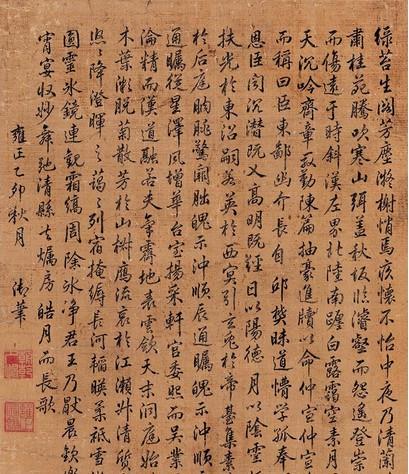 綠苔生閣芳塵凝榭悄焉疚懷不怡中夜乃清蘭
肅桂苑騰吹寒山弭蓋秋坂臨濬壑而怨遙登崇
而傷遠于時斜漢左界北陸南躔白露靄空素月
天沉吟齊章殷勤陳篇抽毫進牘以命仲宣仲宣
而稱曰臣東鄙幽介長自邱樊昧道懵學孤奉
恩臣聞沉潛既義高明既經日以陽德月以陰靈
扶光於東沼嗣若英於西冥引玄兔於帝臺集素
於后庭朒朓警闕朏魄示沖順辰通矚魄示沖順
通矚從星澤風增華台室揚采軒宮委照而吳業
淪精而漢道融若夫氣霽地表雲斂天末洞庭始
木葉漸脫菊散芳於山椒鴈流哀於江瀨升清質
悠悠降澄暉之藹藹列宿掩縟長河韜映柔祇雪
圓靈水鏡連觀霜縞周除冰净君王乃厭晨歡樂
宵宴收妙舞弛清縣去燭房皓月而長歌
雍正乙卯秋月 御筆